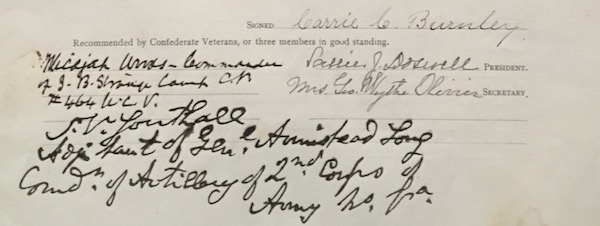 SIGNED Carrie C. Burnley
Recommended by Confederate Veterans, or three members in good standing.
Micajah Woods - Commander
of J. B. Strange Camp C.V.
#464 U.C.V.
Sallie J. Doswell PRESIDENT.
Mrs. Geo. Wythe Olivier SECRETARY.
S. V. Southall
Adjutant of Genl Armistead Long
Comdn. of Artillery of 2nd Corps of
Army No. Va.